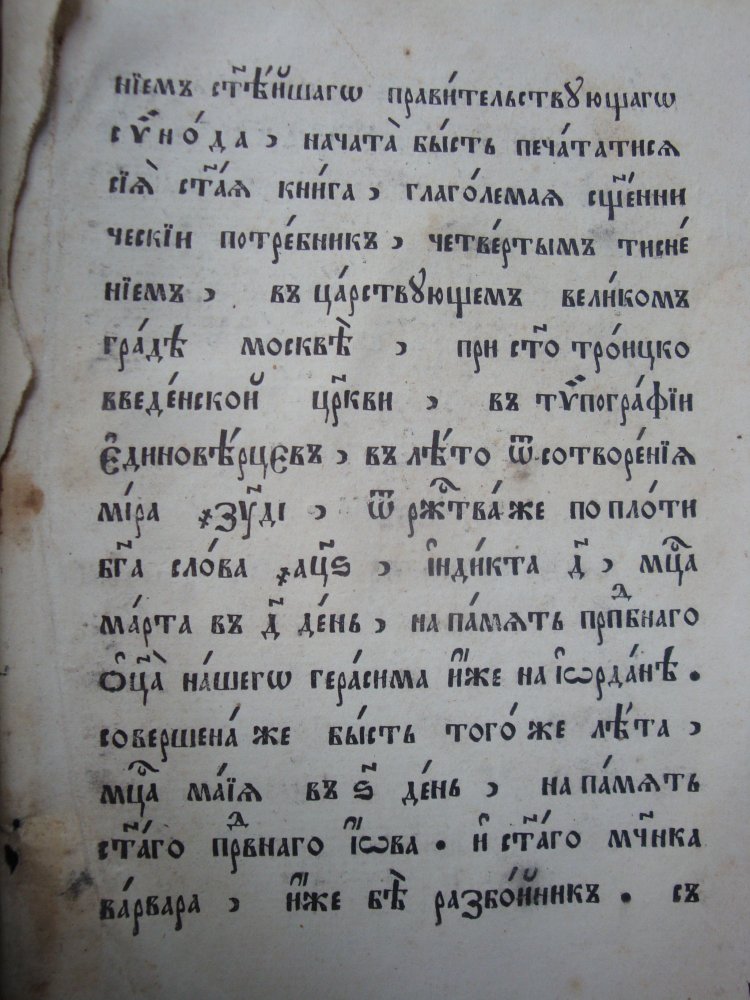 нїемъ ст҃ѣ́йшагѡ прави́тельствꙋющагѡ
сѷно́да , начата̀ бы́сть печа́татисѧ
сїѧ̀ ст҃а́ѧ кни́га , глаго́лемаѧ сщ҃е́нни
ческїи потре́бникъ , четве́ртымъ тисне́
нїемъ , въ ца́рствꙋющемъ вели́комъ
гра́дѣ москвѣ̀ , при ст҃о тро́ицко
введе́нской цр҃кви , въ тѷпогра́фїи
є҆диновѣ́рцєвъ , въ лѣ́то ѿ сотворе́нїѧ
мі́ра ҂зу҃ді , ѿ рж҇тва́ же по пло́ти
бг҃а сло́ва ҂ац҃ѕ , і҆нді́кта д҃ , мц҇а
ма́рта въ д҃ де́нь , на па́мѧть прпⷣбнаго
ѻ҆ц҃а̀ на́шегѡ гера́сима и҆́же на і҆ѡрда́нѣ .
соверше́на же бы́сть того́ же лѣ́та ,
мц҇а ма́їѧ въ ѕ҃ де́нь , на па́мѧть
ст҃а́го прⷣвнаго і҆́ѡва . и҆ ст҃а́го мч҃нка
ва́рвара , и҆́же бѣ̀ разбо́йникъ . съ